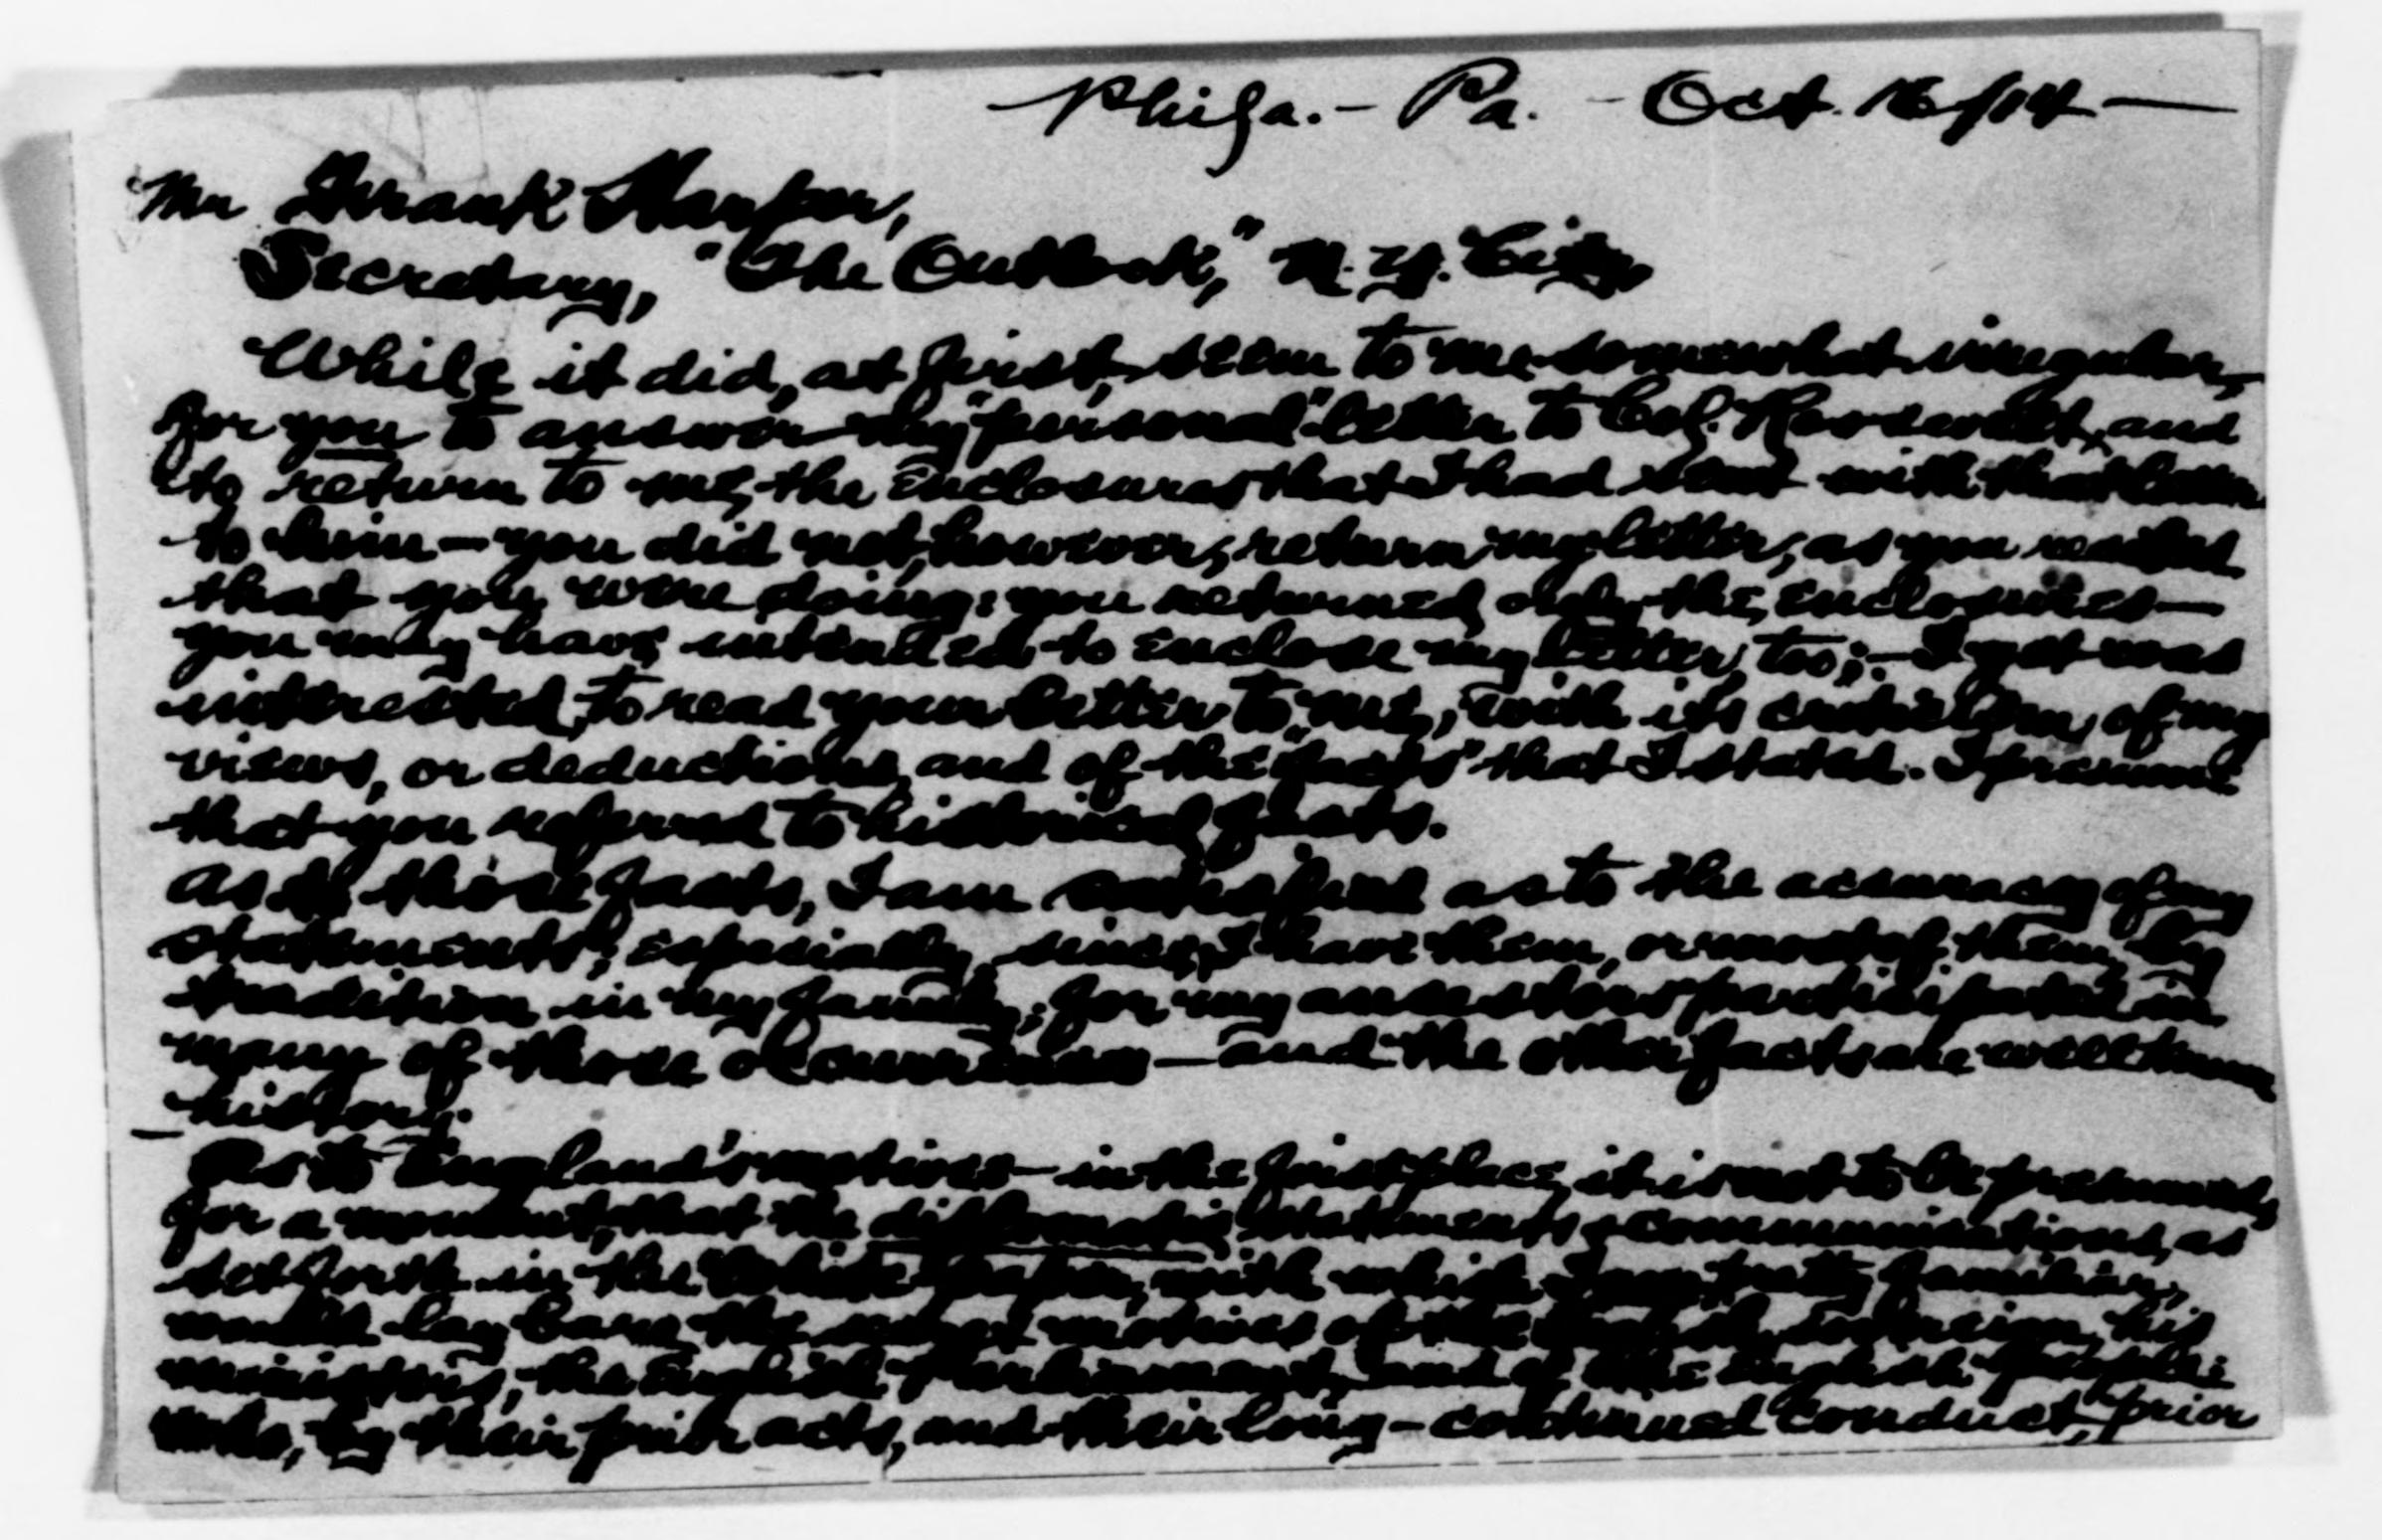 Phila. - Pa. - Oct. 16/14 -
Mr Frank Harper,
Secretary, "The Outlook," N. Y. City
While it did, at first, seem to me somewhat irregular,
for you to answer my "personal" letter to Col. Roosevelt, and
to return to me, the enclosures that I had sent with that letter
to him - you did not, however, return my letter, as you
that you were doing: you returned only the enclosures -
you may have intended to enclose my letter, too; - I yet was
interested, to read your letter to me, with its criticism, of my
views, or deductions, and of the "facts" that I stated. I presume
that you referred to historical facts.
As to those facts, I am satisfied as to the accuracy of my
statements; especially, since, I have them, or most of them, by
tradition in my family; for my ancestors participated in
many of those occurrences - and the other facts are well known
history.
- As to England's motives - in the first place, it is not to be presumed,
for a moment, that the diplomatic statements & communications, as
set forth in the White Paper, with which I am pretty familiar,
would lay bare the motives of the English sovereign, his
ministers, the English Parliament, and of the English people:
who, by their prior acts, and their long-continued conduct, prior